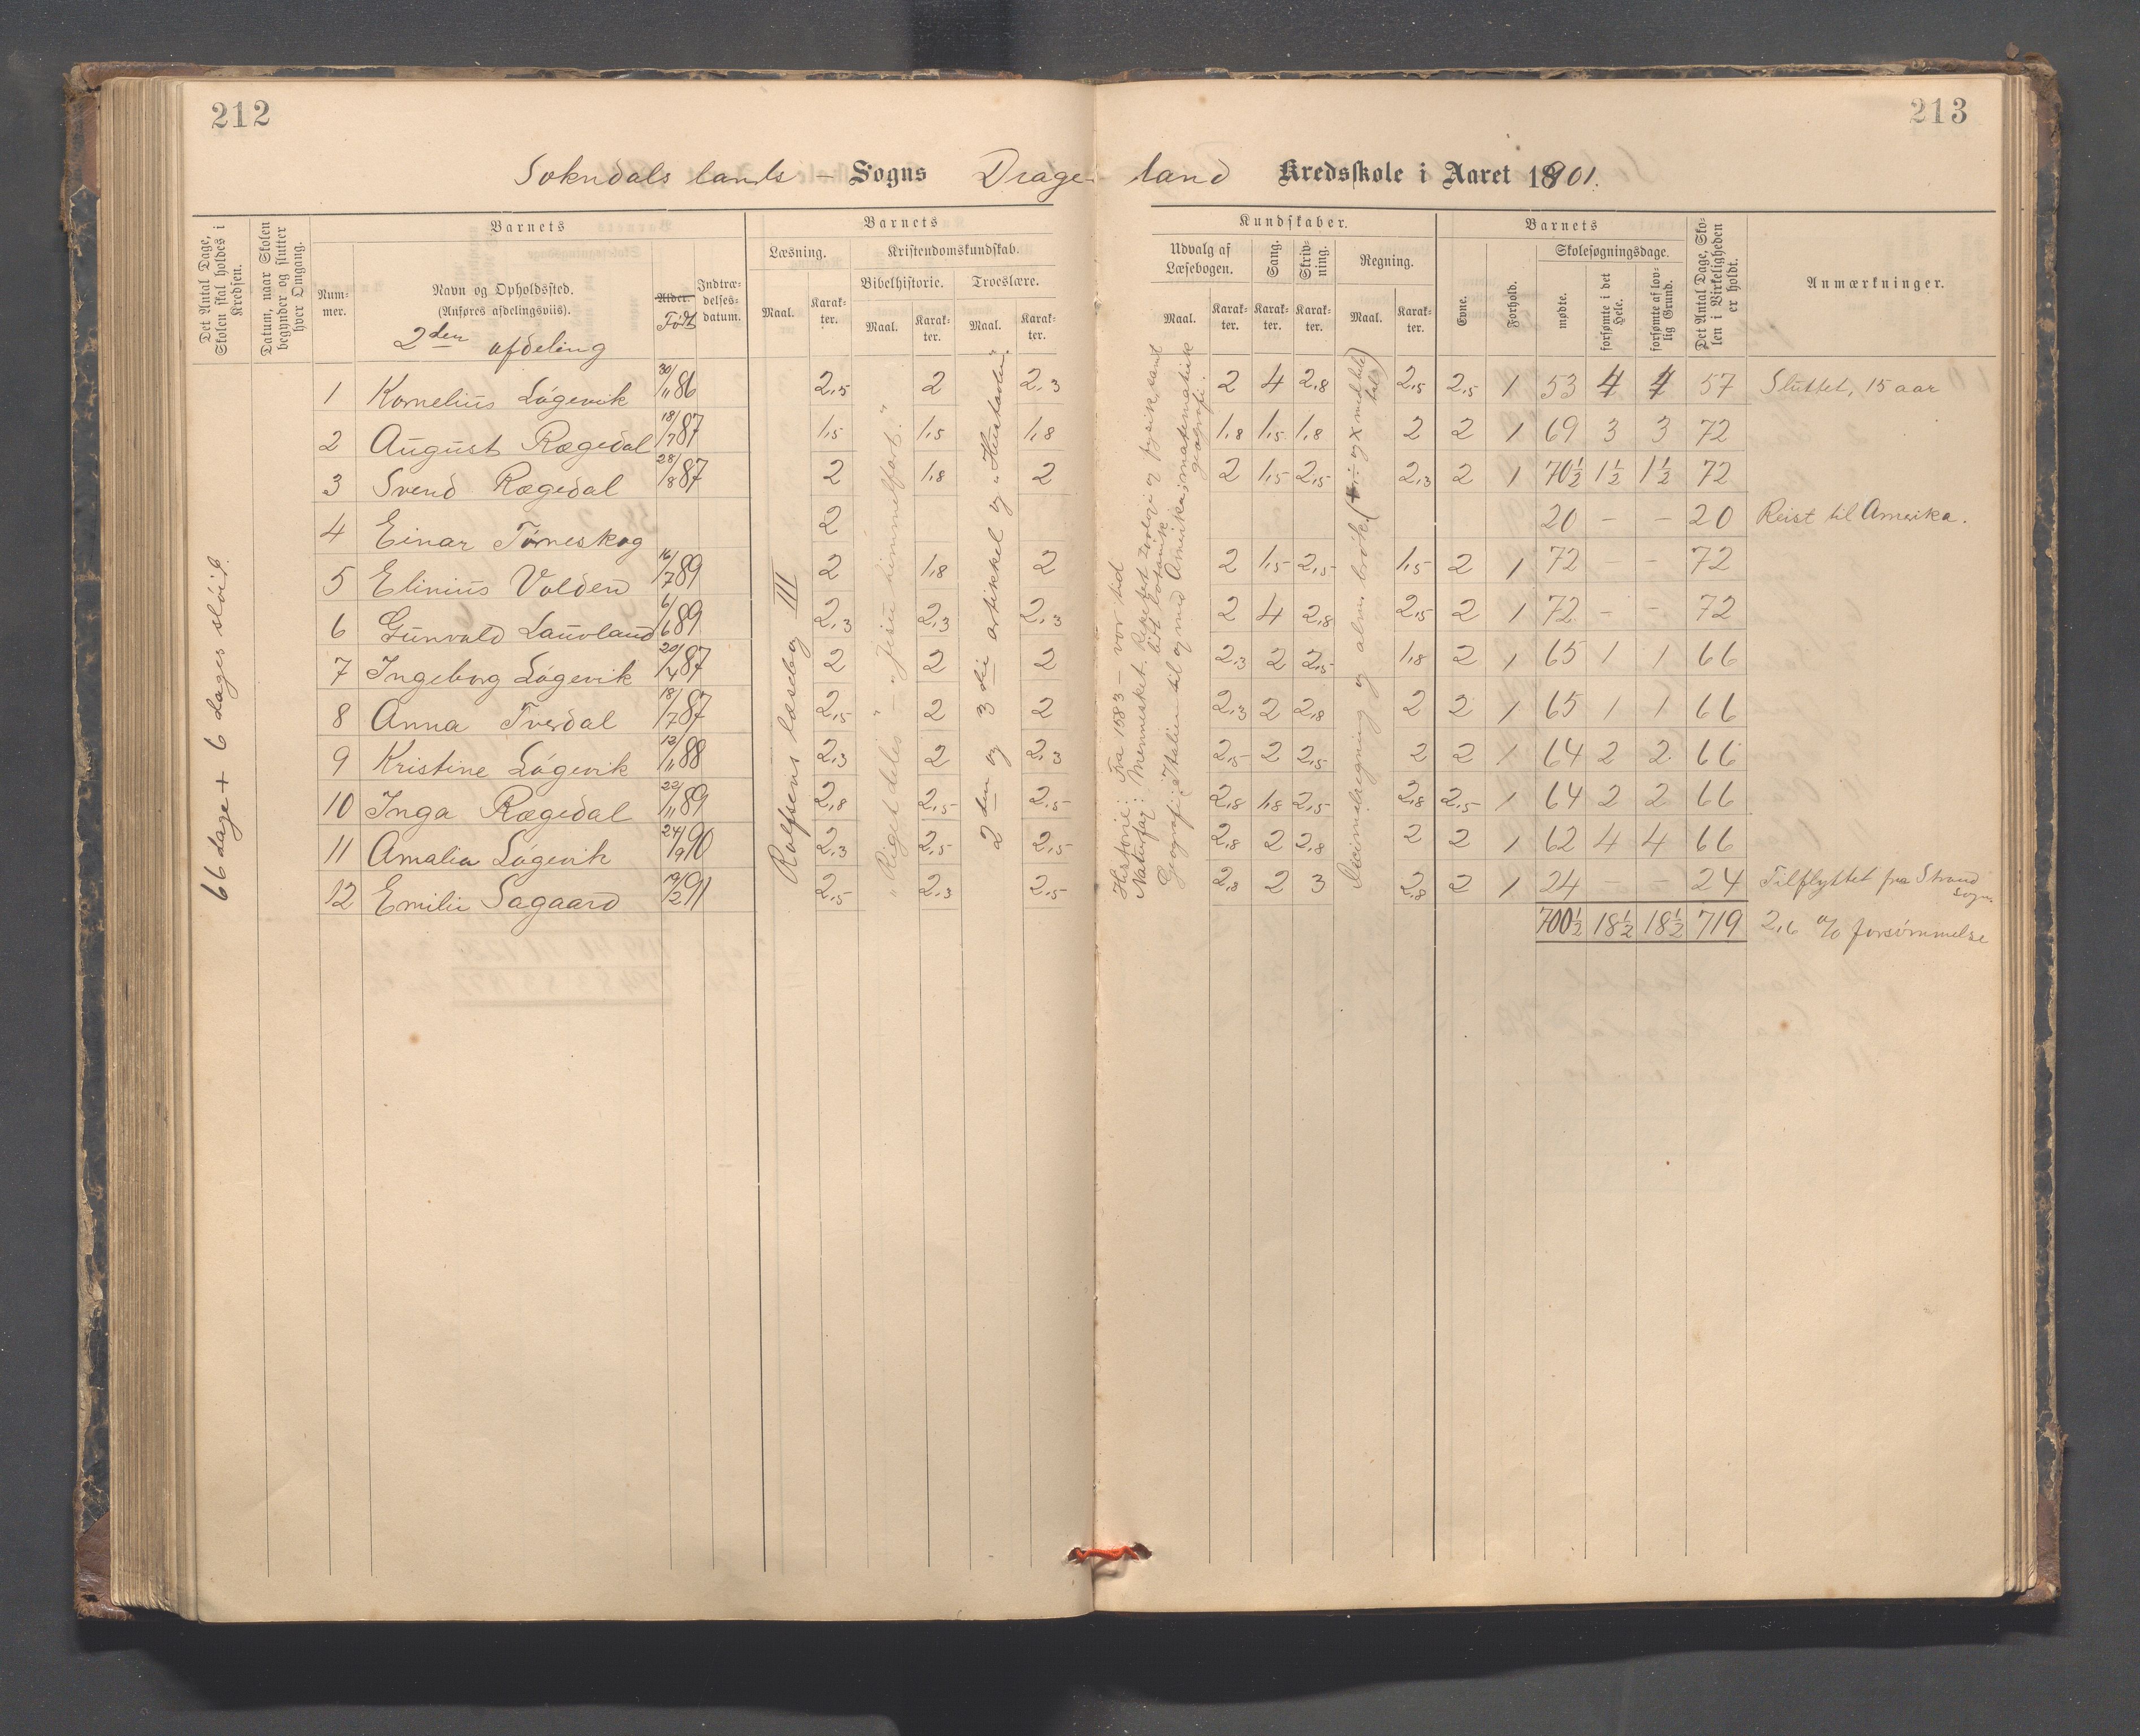 212
213
Sokndals lands – Sogns Drage- land Kredsskole i Aaret 1901.
Det Antal Dage, Skolen skal holdes i Kredsen.
Datum, naar Skolen begynder og slutter hver Omgang.
Barnets
Num-
mer.
Navn og Opholdssted.
(Anføres afdelingsviis).
2den afdeling
Alder.
Født
Indtræ-
delses-
datum.
Barnets
Læsning.
Kristendomskundskab.
Bibelhistorie.
Troeslære.
Maal.
Karak-
ter.
Maal.
Karak-
ter.
Maal.
Karak-
ter.
Kundskaber.
Udvalg af
Læsebogen.
Sang.
Skriv-
ning.
Regning.
Maal.
Karak-
ter.
Karak-
ter.
Karak-
ter.
Maal.
Karak-
ter.
Barnets
Evne.
Forhold.
Skolesøgningsdage.
mødte.
forsømte i det Hele.
forsømte af lov-
lig Grund.
Det Antal Dage, Sko-
len i Virkeligheden
er holdt.
Anmærkninger.
66 dage + 6 dages sløid.
Rolfsens læsebog III
"Riget deles" – "Jesu himmelfart."
2den og 3die artikkel og "Hustavlen".
Historie: Fra 1583 – vor tid
Naturfag: Mennesket. Repetert zoologi og fysik, samt
litt botanik
Geografi: Italien til og med Amerika; matematisk
geografi.
Decimalregning og alm. brøk. (+, – og × med hele
tal)
1 Kornelius Løgevik 30/11 86 2,5 2 2,3 2 4 2,8 2,5 2,5 1 53 4 4 57 Sluttet, 15 aar
2 August Rægedal 18/7 87 1,5 1,5 1,8 1,8 1,5 1,8 2 2 1 69 3 3 72
3 Svend Rægedal 28/8 87 2 1,8 2 2 1,5 2,5 2,3 2 1 70½ 1½ 1½ 72
4 Einar Tørneskog 2 20 – – 20 Reist til Amerika.
5 Elinius Valden 16/7 89 2 1,8 2 2 1,5 2,5 1,5 2 1 72 – – 72
6 Gunvald Lauvland 6/6 89 2,3 2,3 2,3 2 4 2,8 2,5 2 1 72 – – 72
7 Ingeborg Løgevik 20/4 87 2 2 2 2,3 2 2,5 1,8 2 1 65 1 1 66
8 Anna Tverdal 18/7 87 2,5 2 2 2,3 2 2,8 2 2 1 65 1 1 66
9 Kristine Løgevik 12/11 88 2,3 2 2,3 2,5 2 2,5 2 2 1 64 2 2 66
10 Inga Rægedal 22/11 89 2,8 2,5 2,5 2,8 1,8 2,5 2,8 2,5 1 64 2 2 66
11 Amalia Løgevik 24/9 90 2,3 2,5 2,5 2,8 2 2,8 2 2 1 62 4 4 66
12 Emilie Sagaard 19/2 91 2,5 2,3 2,5 2,8 2 3 2,8 2 1 24 – – 24 Tilflyttet fra Strand
sogn.
700½ 18½ 18½ 719 2,6 % forsømmelse